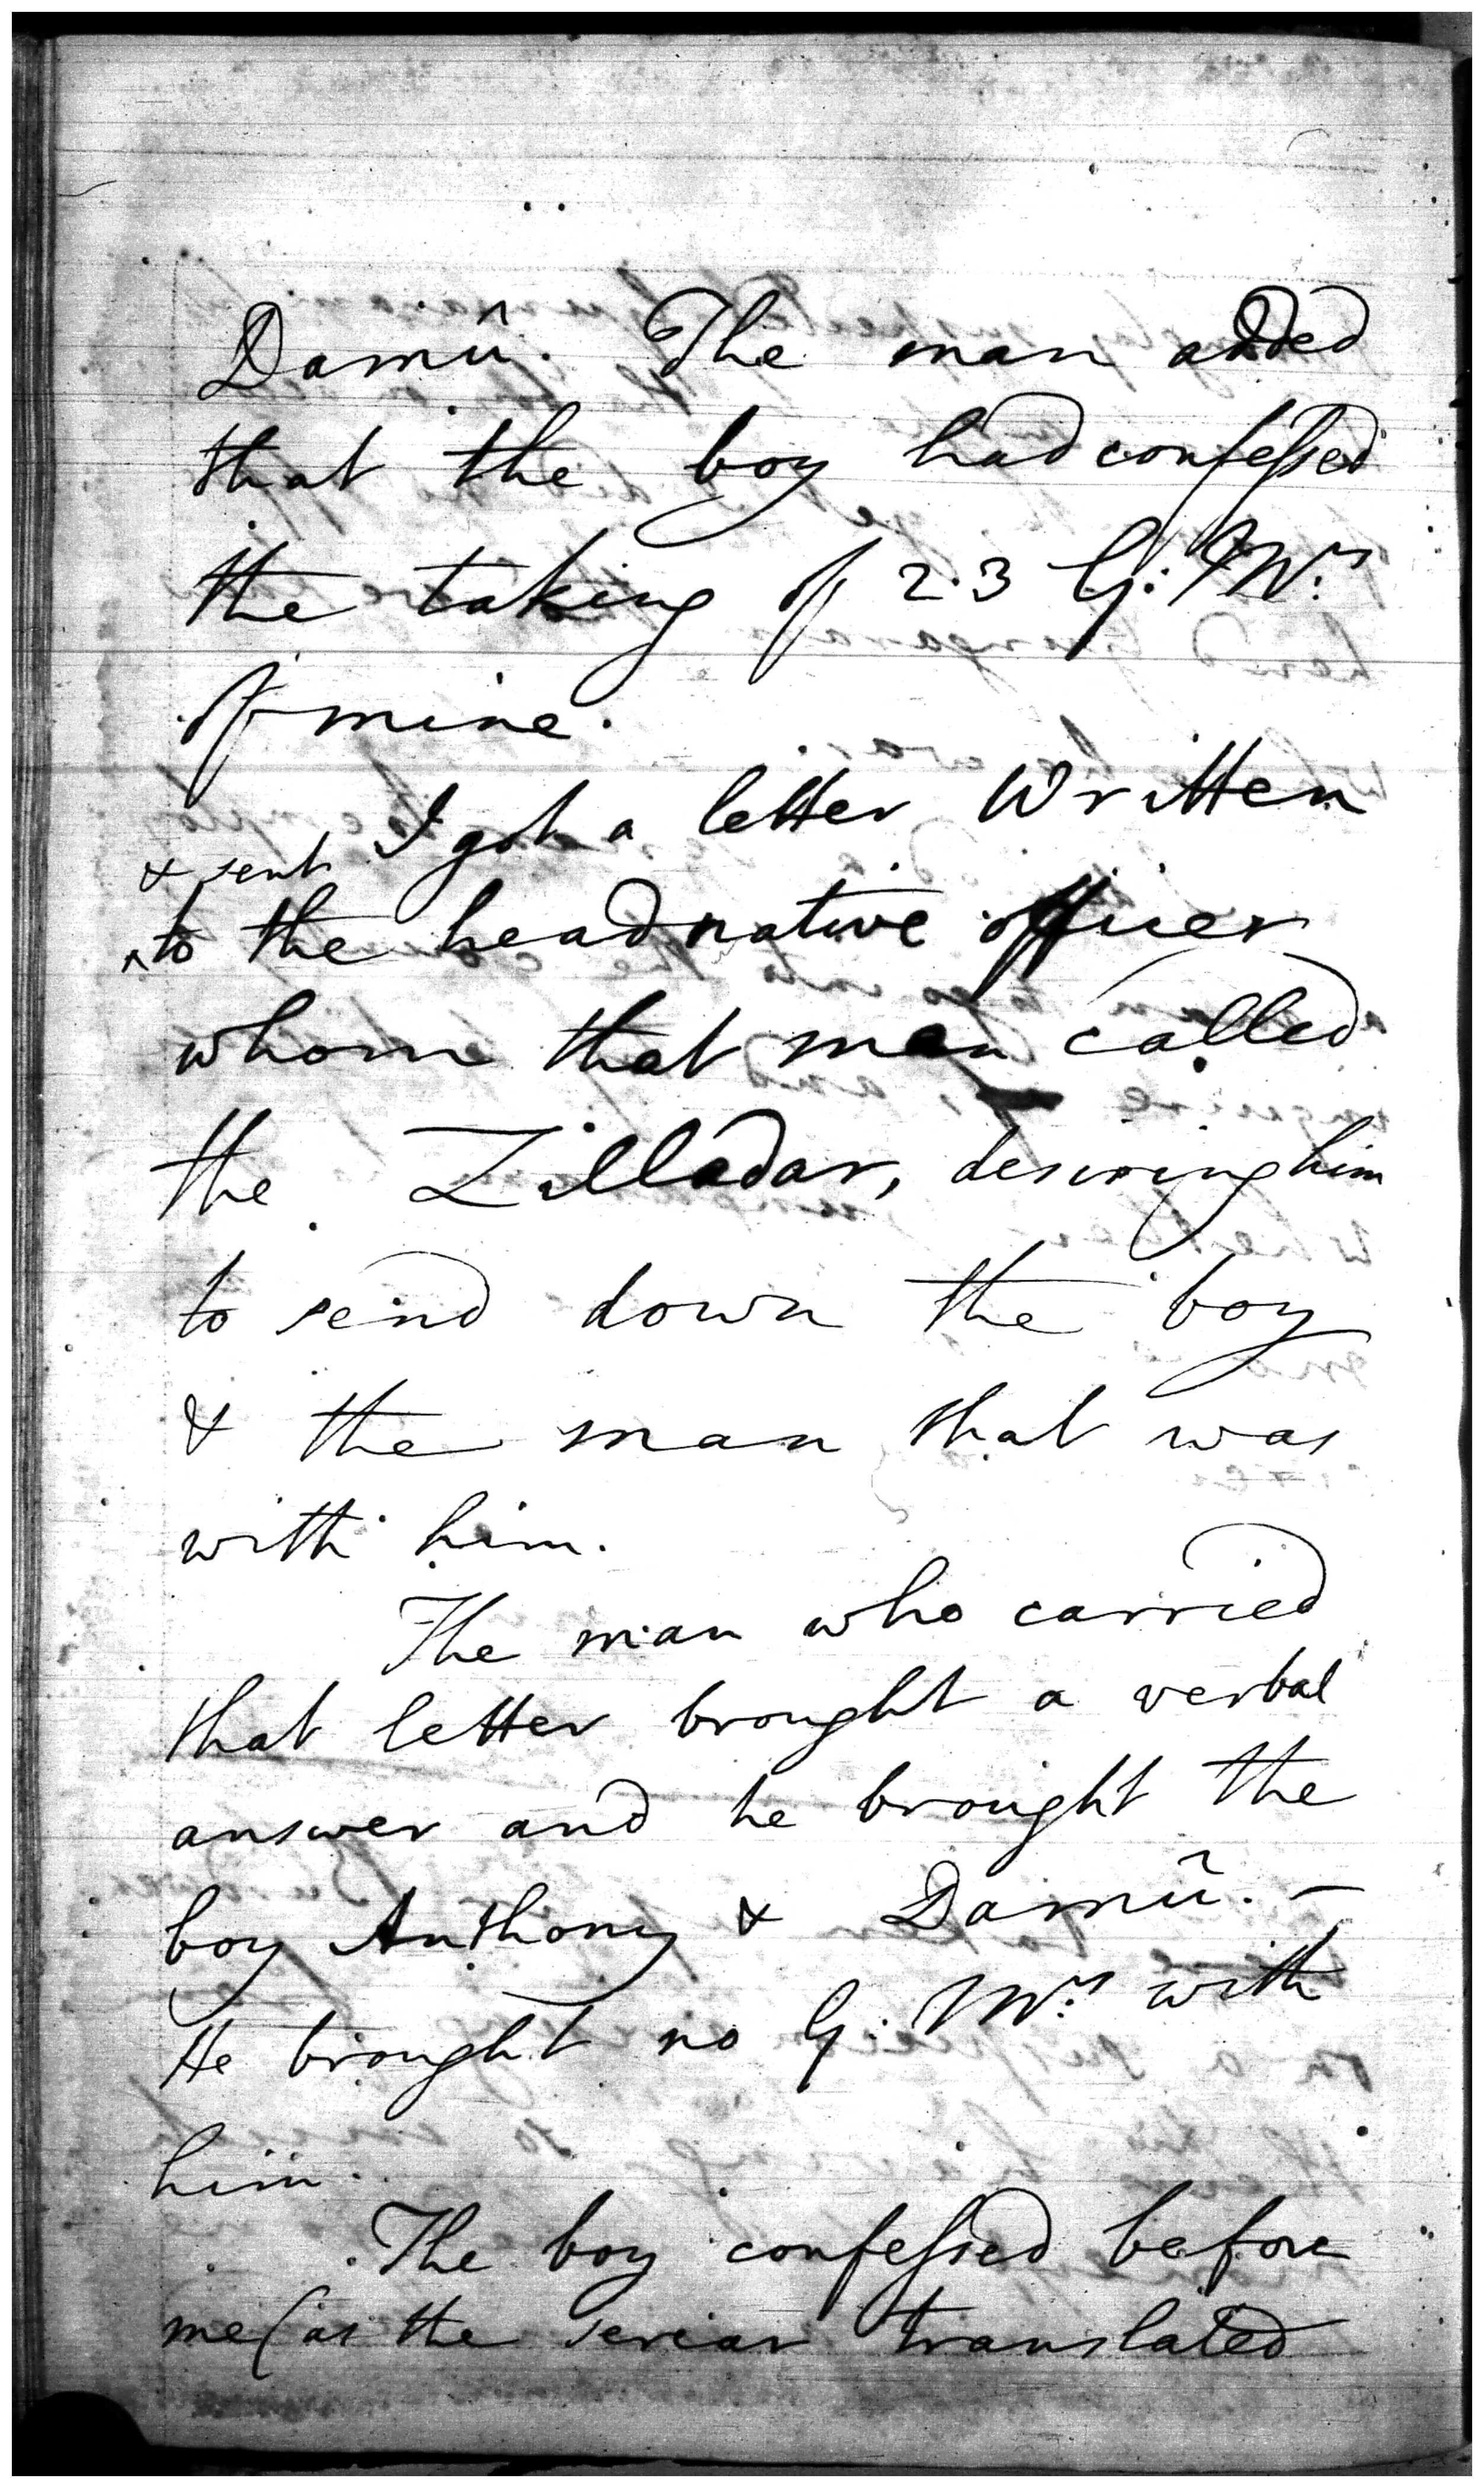 Damû. The man added
that the boy had confessed
the taking of 23 G: Mrs
of mine.
I got a letter Written
& sent
^to the head native officer
whom that man called
the Zilladar, desiring him
to send down the boy
& the man that was
with him.
The man who carried
that letter brought a verbal
answer and he brought the
boy Anthony & Damû. —
He brought no G. Mrs with
him.
The boy confessed before
me (as the sercar translated